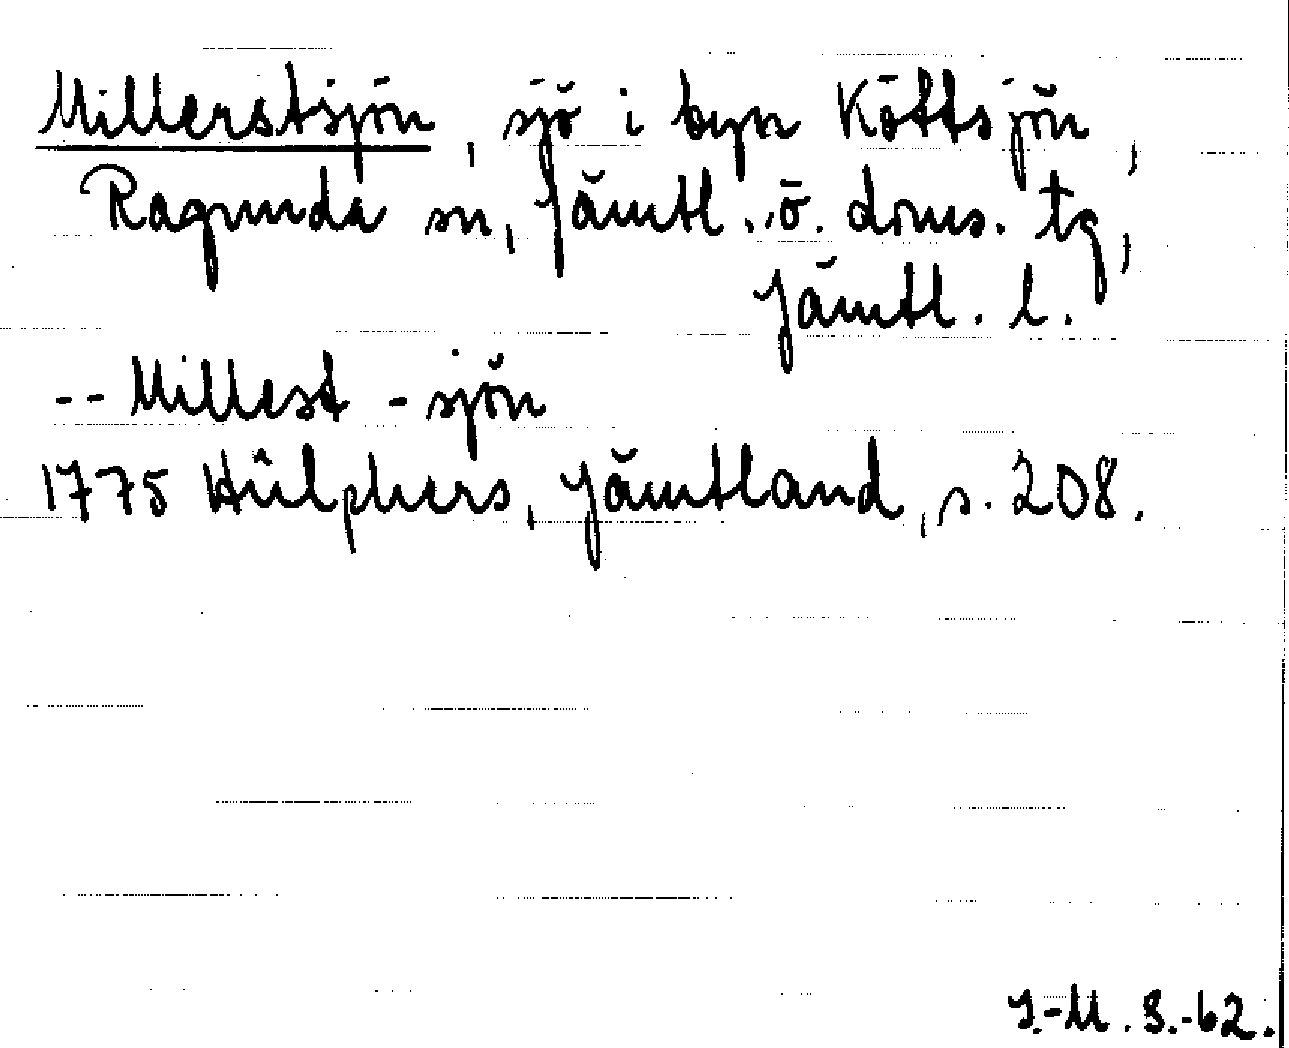 Millerstsjön, sjö i byn Köttsjön,
Ragunda sn, Jämtl. ö. doms. tg,
Jämtl. l.
-- Millest - sjön
1775 Hülphers, Jämtland, s. 208.
I.-M. S.-62.